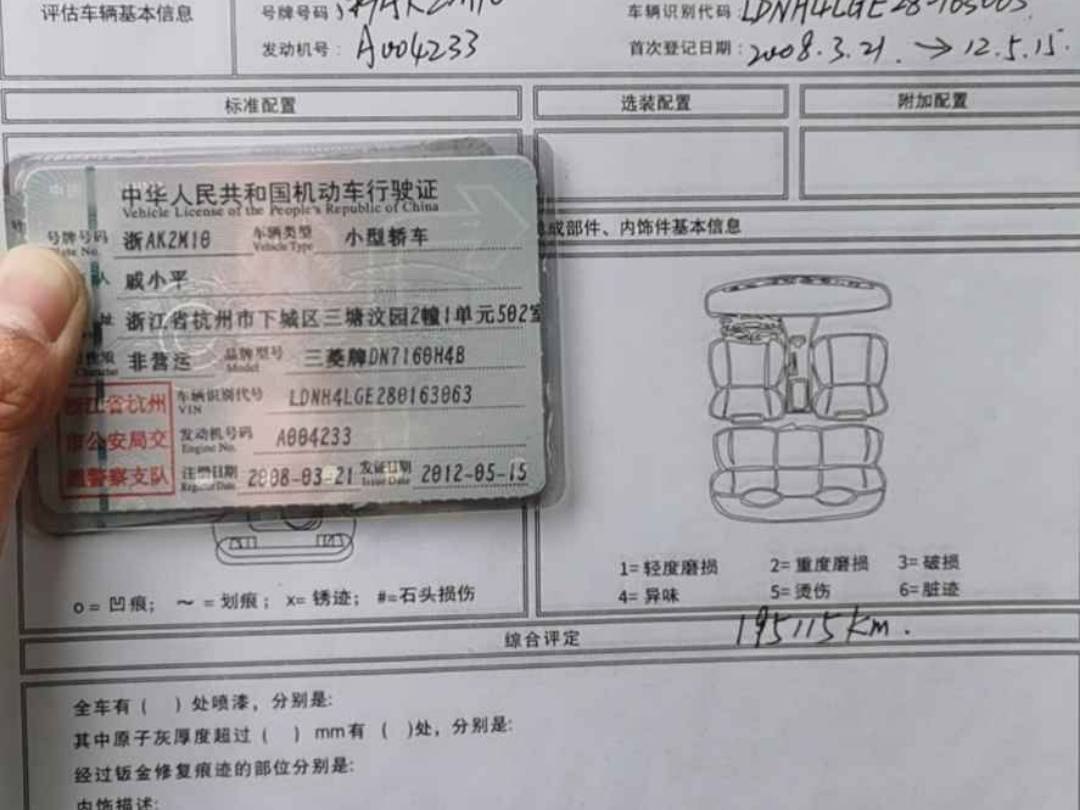 评估车辆基本信息
号牌号码：浙AK2M10
车辆识别代码：LDNH4LGE280163063
发动机号：A004233
首次登记日期：2008.3.21. → 12.5.15.
标准配置
选装配置
附加配置
中华人民共和国机动车行驶证
Vehicle License of the People's Republic of China
号牌号码 浙AK2M10 车辆类型 小型轿车
Plate No. Vehicle Type
人 戚小平
址 浙江省杭州市下城区三塘汶园2幢1单元502室
非营运 品牌型号 三菱牌DN7160H4B
Character Model
车辆识别代号 LDNH4LGE280163063
VIN
发动机号码 A004233
Engine No.
注册日期 2008-03-21 发证日期 2012-05-15
Register Date Issue Date
浙江省杭州
市公安局交
通警察支队
成部件、内饰件基本信息
o = 凹痕； ～ = 划痕； x= 锈迹； #=石头损伤
1= 轻度磨损 2= 重度磨损 3= 破损
4= 异味 5= 烫伤 6= 脏迹
综合评定
195115km.
全车有（ ）处喷漆，分别是:
其中原子灰厚度超过（ ）mm有（ )处，分别是:
经过钣金修复痕迹的部位分别是:
内饰描述: